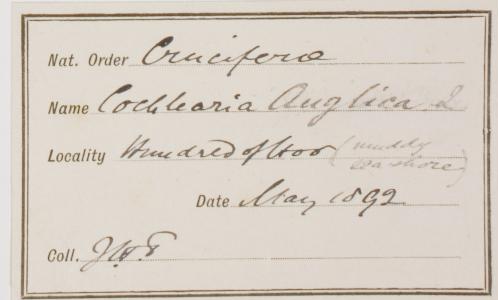 Nat. Order Cruciferæ
Name Cochlearia Anglica L
Locality Hundred of Hoo (muddy
sea-shore)
Date May 1892
Coll. J.H.T